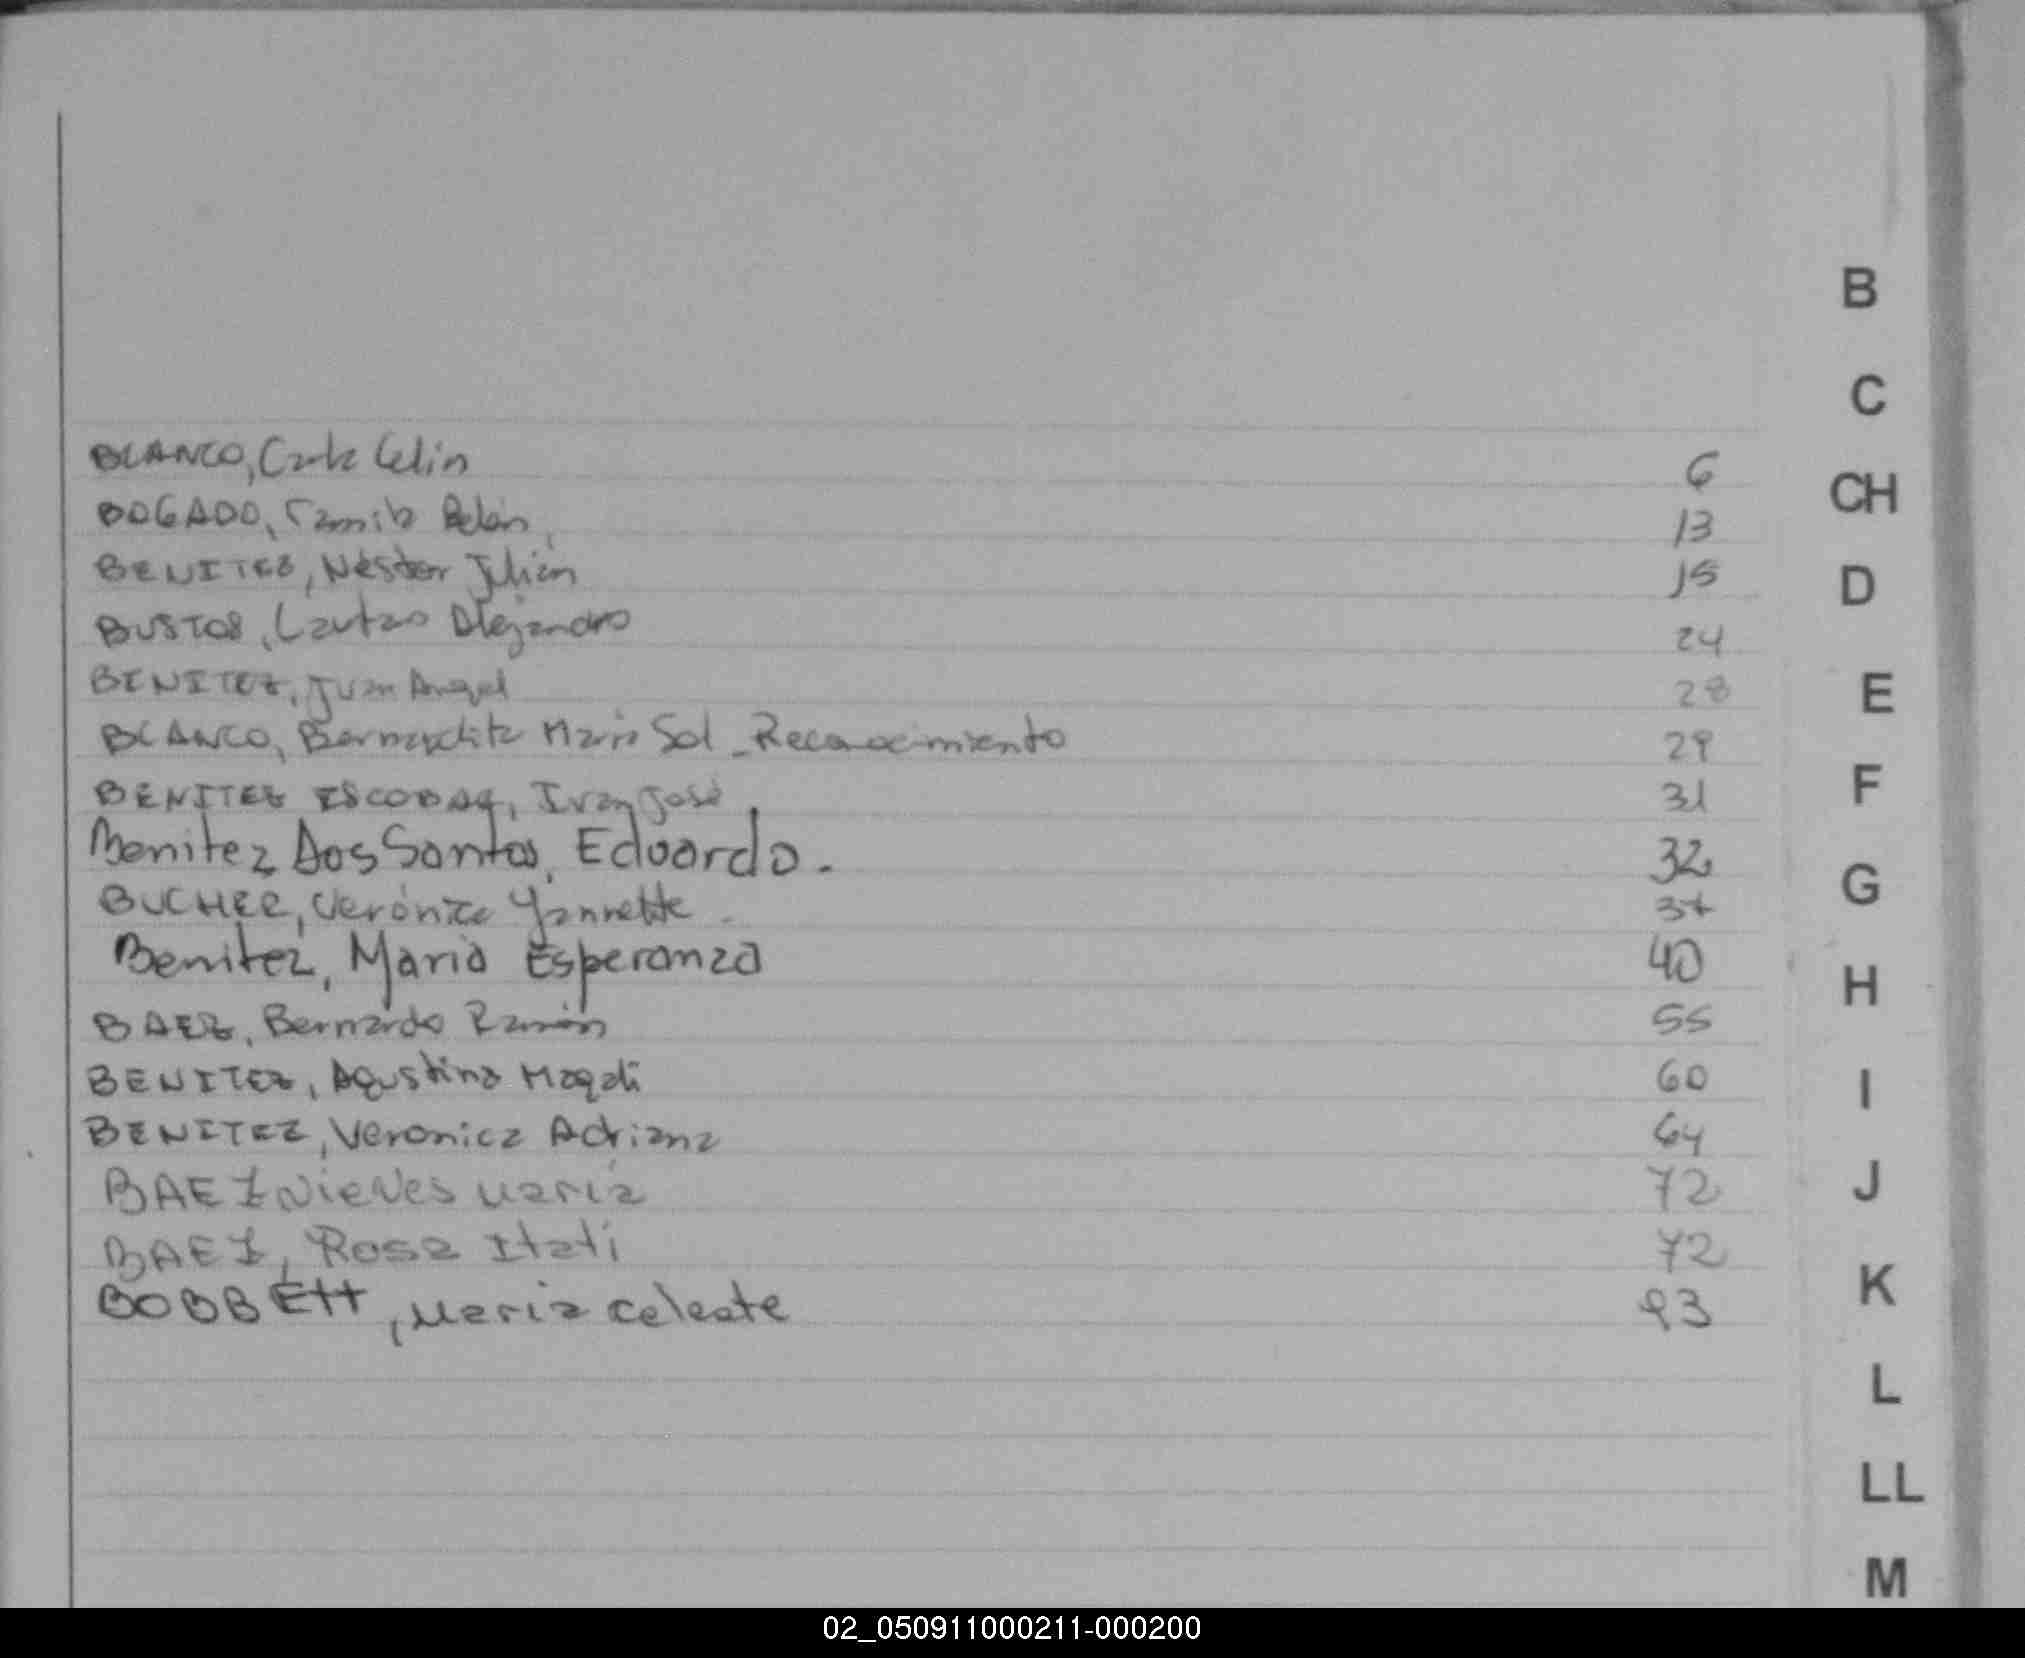 BLANCO, Carla Celin 6
BOGADO, Camila Belén 13
BENITEZ, Néstor Julián 15
BUSTOS, Lautaro Alejandro 24
BENITEZ, Juan Angel 28
BLANCO, Bernardita María Sol - Reconocimiento 29
BENITEZ ESCOBAR, Ivan José 31
Benitez Dos Santos, Eduardo. 32
BUCHER, Verónica Yannette 37
Benitez, Maria Esperanza 40
BAEZ, Bernardo Ramón 55
BENITEZ, Agustina Magali 60
BENITEZ, Veronica Adriana 64
BAEZ Nieves María 72
BAEZ, Rosa Itati 72
BOBBETT, Maria Celeste 93
B
C
CH
D
E
F
G
H
I
J
K
L
LL
M
02_050911000211-000200